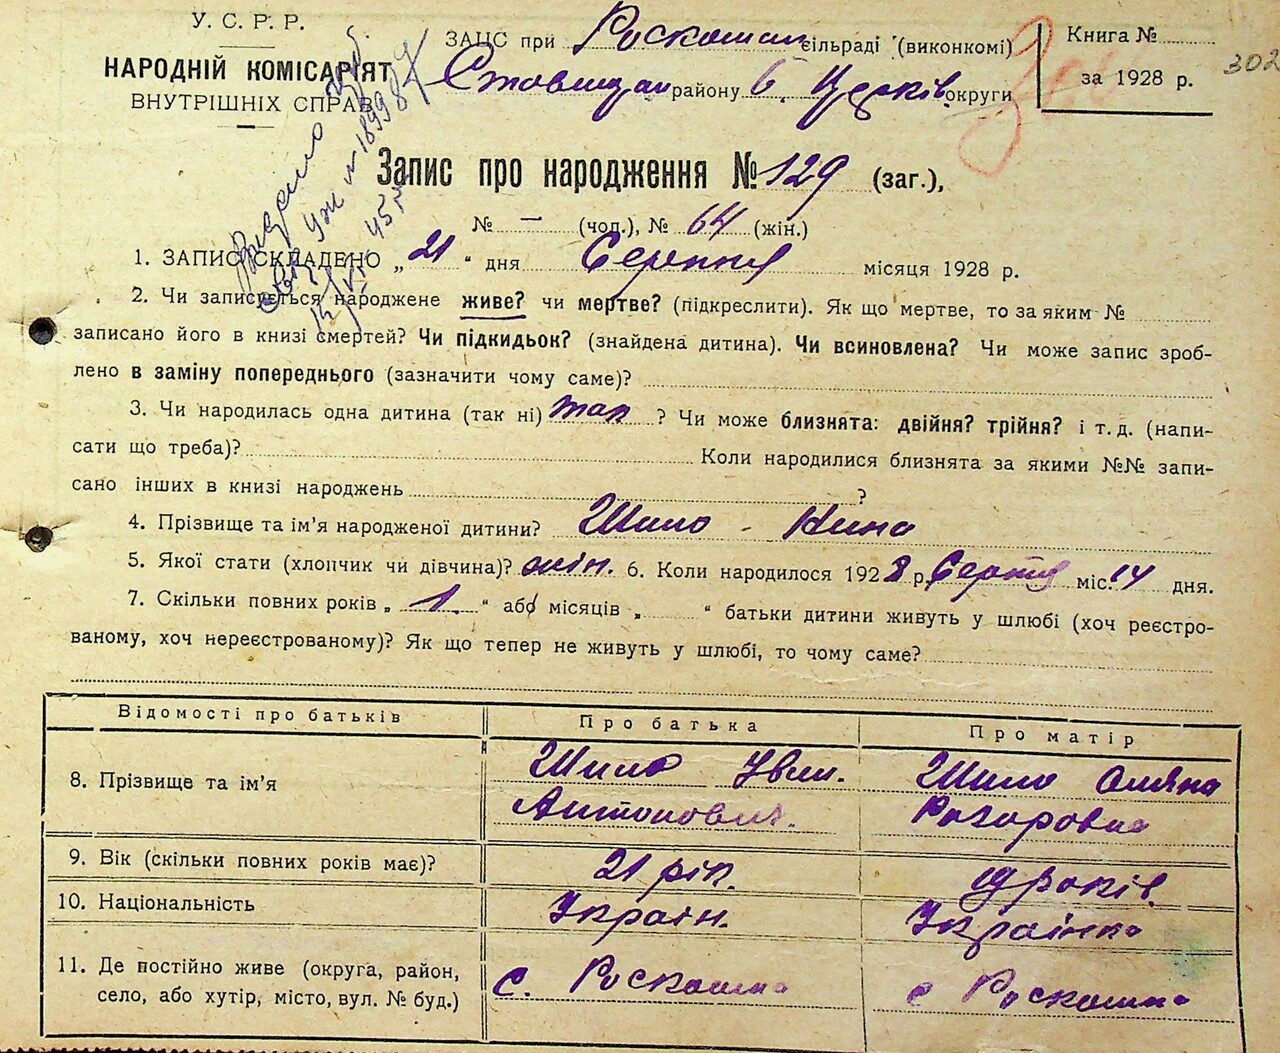 У. С. Р. Р.
НАРОДНІЙ КОМІСАР'ЯТ
ВНУТРІШНІХ СПРАВ
ЗАПС при Роскошан сільраді (виконкомі)
Ставищан району Б. Церків. округи
Книга №
за 1928 р.
302
Видано
№ 18998
45 р
Запис про народження № 129 (заг.),
№ — (чол.), № 64 (жін.)
1. ЗАПИС СКЛАДЕНО „ 21 “ дня Серпня місяця 1928 р.
2. Чи записується народжене живе? чи мертве? (підкреслити). Як що мертве, то за яким №
записано його в книзі смертей? Чи підкидьок? (знайдена дитина). Чи всиновлена? Чи може запис зроб-
лено в заміну попереднього (зазначити чому саме)?
3. Чи народилась одна дитина (так ні) так ? Чи може близнята: двійня? трійня? і т. д. (напи-
сати що треба)? Коли народилися близнята за якими №№ запи-
сано інших в книзі народжень ?
4. Прізвище та ім'я народженої дитини? Шило - Нина
5. Якої стати (хлопчик чи дівчина)? жін. 6. Коли народилося 1928 р. Серпня міс. 14 дня.
7. Скільки повних років „ 1. “ або місяців „ “ батьки дитини живуть у шлюбі (хоч реєстро-
ваному, хоч нереєстрованому)? Як що тепер не живуть у шлюбі, то чому саме?
Відомості про батьків
Про батька
Про матір
8. Прізвище та ім'я
Шило Іван.
Антонович.
Шило Оляна
Захаровна
9. Вік (скільки повних років має)?
21 рік.
19 років.
10. Національність
Україн.
Українка
11. Де постійно живе (округа, район,
село, або хутір, місто, вул. № буд.)
с. Роскошна
с Роскошна